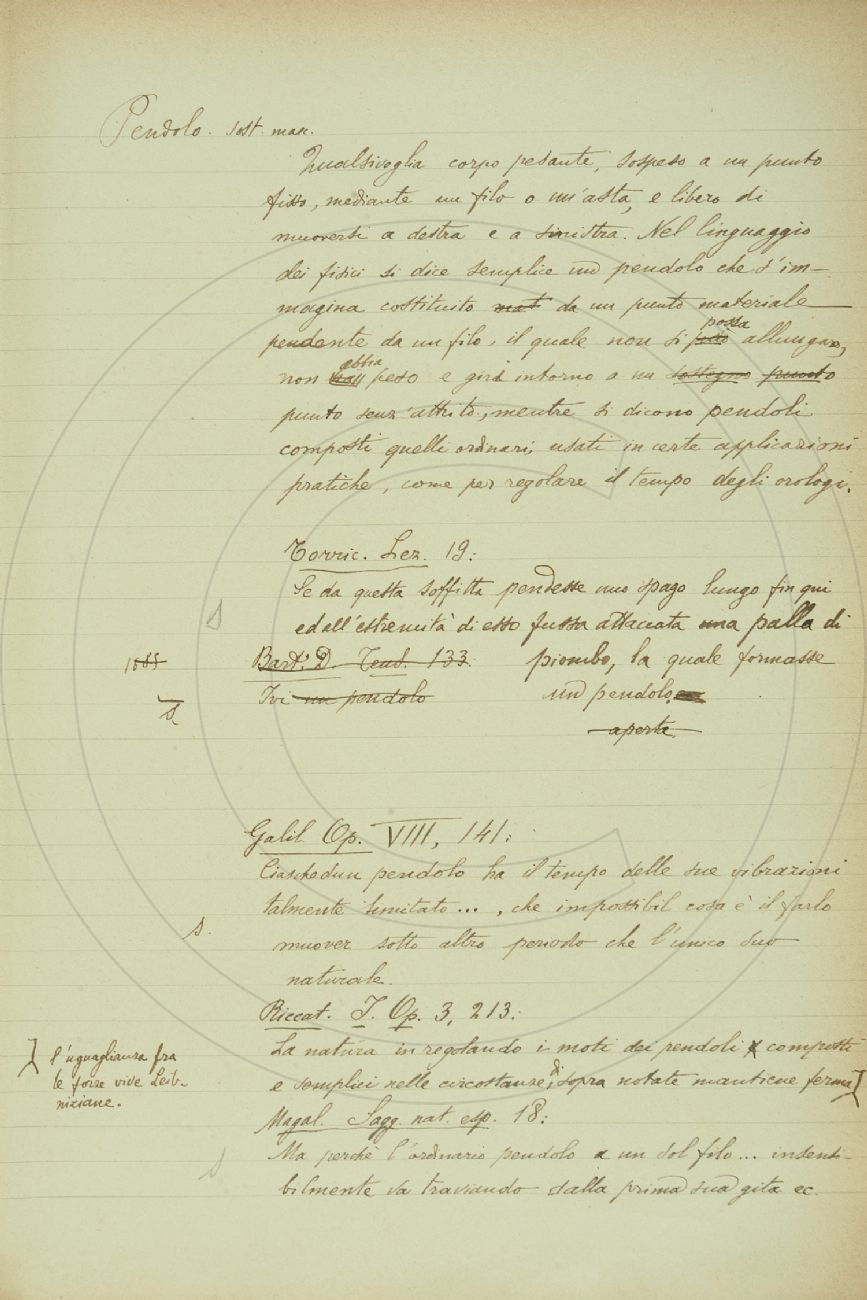 Pendolo. sost. mas.
Qualsivoglia corpo pesante, sospeso a un punto
fisso, mediante un filo o un'asta, e libero di
muoversi a destra e a sinistra. Nel linguaggio
dei fisici si dice semplice un pendolo che s'im-
magina costituito mat da un punto materiale
pendente da un filo, il quale non si possa allungare,
non abbia peso e giri intorno a un sostegno punto
punto senz'attrito, mentre si dicono pendoli
composti quelli ordinari, usati in certe applicazioni
pratiche, come per regolare il tempo degli orologi.
Torric. Lez. 19:
Se da questa soffitta pendesse uno spago lungo fin qui
ed all'estremità di esso fussa attaccata una palla di
piombo, la quale formasse
un pendolo
aperta
Bart. D. Tens. 133.
Ivi un pendolo
S
S.
Galil Op. VIII, 141:
Ciaschedun pendolo ha il tempo delle sue vibrazioni
talmente limitato ..., che impossibil cosa è il farlo
muover sotto altro periodo che l'unico suo
naturale.
S.
Riccat. J. Op. 3, 213:
La natura in regolando i moti dei pendoli composti
e semplici nelle circostanze di sopra notate mantiene ferma }
} l'uguaglianza fra
le forze vive Leib-
niziane.
Magal. Sagg. nat. esp. 18:
Ma perchè l'ordinario pendolo a un sol filo ... insensi-
bilmente va traviando dalla prima sua gita ec.
S